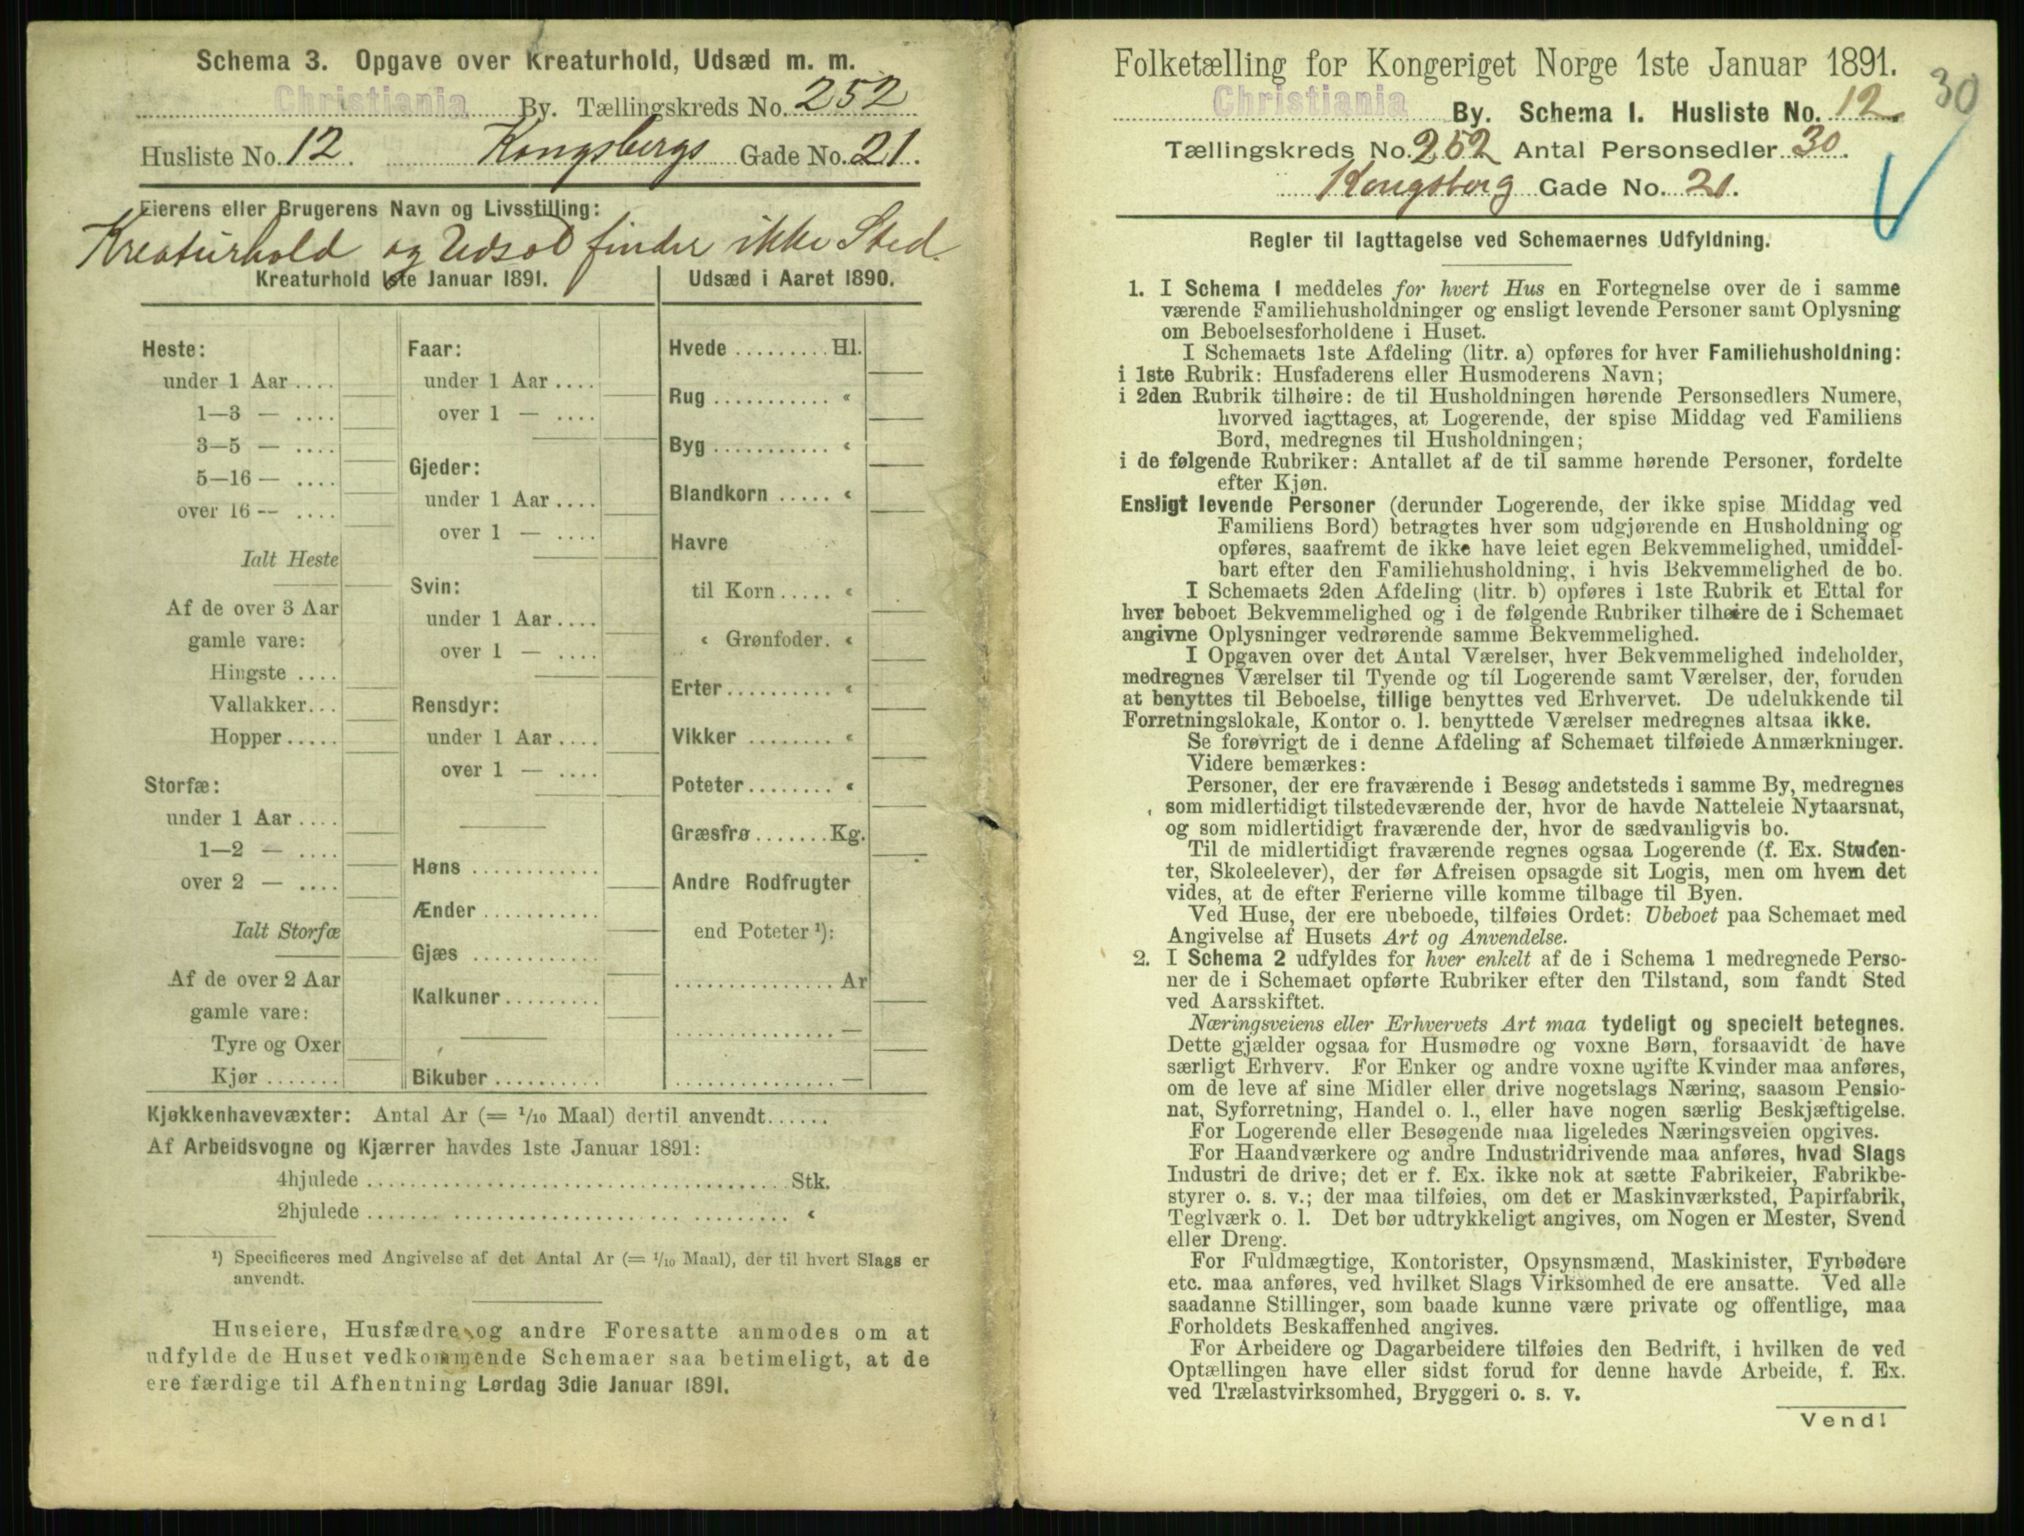 Schema 3. Opgave over Kreaturhold, Udsæd m. m.
Christiania By. Tællingskreds No. 252
Husliste No. 12. Kongsbergs Gade No. 21.
Eierens eller Brugerens Navn og Livsstilling:
Kreaturhold og Udsæd finder ikke Sted.
Kreaturhold 1ste Januar 1891.
Heste:
under 1 Aar ....
1—3 — ....
3—5 — ....
5—16 — ....
over 16 — ....
Ialt Heste
Af de over 3 Aar
gamle vare:
Hingste ....
Vallakker...
Hopper .....
Storfæ:
under 1 Aar ....
1—2 — ....
over 2 — ....
Ialt Storfæ
Af de over 2 Aar
gamle vare:
Tyre og Oxer
Kjør .......
Faar:
under 1 Aar ....
over 1 — ....
Gjeder:
under 1 Aar ....
over 1 — ....
Svin:
under 1 Aar ....
over 1 — ....
Rensdyr:
under 1 Aar ....
over 1 — ....
Høns ............
Ænder ...........
Gjæs ............
Kalkuner .........
Bikuber ..........
Udsæd i Aaret 1890.
Hvede ......... Hl.
Rug ........... «
Byg ........... «
Blandkorn ..... «
Havre
til Korn ..... «
« Grønfoder. «
Erter .......... «
Vikker ........ «
Poteter ........ «
Græsfrø ....... Kg.
Andre Rodfrugter
end Poteter ¹):
............... Ar
............... —
............... —
Kjøkkenhavevæxter: Antal Ar (= 1/10 Maal) dertil anvendt......
Af Arbeidsvogne og Kjærrer havdes 1ste Januar 1891:
4hjulede ........................................ Stk.
2hjulede ........................................ «
¹) Specificeres med Angivelse af det Antal Ar (= 1/10 Maal), der til hvert Slags er
anvendt.
Huseiere, Husfædre og andre Foresatte anmodes om at
udfylde de Huset vedkommende Schemaer saa betimeligt, at de
ere færdige til Afhentning Lørdag 3die Januar 1891.
Folketælling for Kongeriget Norge 1ste Januar 1891.
30
Christiania By. Schema I. Husliste No. 12.
Tællingskreds No. 252 Antal Personsedler 30.
Kongsberg Gade No. 21.
Regler til Iagttagelse ved Schemaernes Udfyldning.
1. I Schema 1 meddeles for hvert Hus en Fortegnelse over de i samme
værende Familiehusholdninger og ensligt levende Personer samt Oplysning
om Beboelsesforholdene i Huset.
I Schemaets 1ste Afdeling (litr. a) opføres for hver Familiehusholdning:
i 1ste Rubrik: Husfaderens eller Husmoderens Navn;
i 2den Rubrik tilhøire: de til Husholdningen hørende Personsedlers Numere,
hvorved iagttages, at Logerende, der spise Middag ved Familiens
Bord, medregnes til Husholdningen;
i de følgende Rubriker: Antallet af de til samme hørende Personer, fordelte
efter Kjøn.
Ensligt levende Personer (derunder Logerende, der ikke spise Middag ved
Familiens Bord) betragtes hver som udgjørende en Husholdning og
opføres, saafremt de ikke have leiet egen Bekvemmelighed, umiddel-
bart efter den Familiehusholdning, i hvis Bekvemmelighed de bo.
I Schemaets 2den Afdeling (litr. b) opføres i 1ste Rubrik et Ettal for
hver beboet Bekvemmelighed og i de følgende Rubriker tilhøire de i Schemaet
angivne Oplysninger vedrørende samme Bekvemmelighed.
I Opgaven over det Antal Værelser, hver Bekvemmelighed indeholder,
medregnes Værelser til Tyende og til Logerende samt Værelser, der, foruden
at benyttes til Beboelse, tillige benyttes ved Erhvervet. De udelukkende til
Forretningslokale, Kontor o. l. benyttede Værelser medregnes altsaa ikke.
Se forøvrigt de i denne Afdeling af Schemaet tilføiede Anmærkninger.
Videre bemærkes:
Personer, der ere fraværende i Besøg andetsteds i samme By, medregnes
som midlertidigt tilstedeværende der, hvor de havde Natteleie Nytaarsnat,
og som midlertidigt fraværende der, hvor de sædvanligvis bo.
Til de midlertidigt fraværende regnes ogsaa Logerende (f. Ex. Studen-
ter, Skoleelever), der før Afreisen opsagde sit Logis, men om hvem det
vides, at de efter Ferierne ville komme tilbage til Byen.
Ved Huse, der ere ubeboede, tilføies Ordet: Ubeboet paa Schemaet med
Angivelse af Husets Art og Anvendelse.
2. I Schema 2 udfyldes for hver enkelt af de i Schema 1 medregnede Perso-
ner de i Schemaet opførte Rubriker efter den Tilstand, som fandt Sted
ved Aarsskiftet.
Næringsveiens eller Erhvervets Art maa tydeligt og specielt betegnes.
Dette gjælder ogsaa for Husmødre og voxne Børn, forsaavidt de have
særligt Erhverv. For Enker og andre voxne ugifte Kvinder maa anføres,
om de leve af sine Midler eller drive nogetslags Næring, saasom Pensio-
nat, Syforretning, Handel o. l., eller have nogen særlig Beskjæftigelse.
For Logerende eller Besøgende maa ligeledes Næringsveien opgives.
For Haandværkere og andre Industridrivende maa anføres, hvad Slags
Industri de drive; det er f. Ex. ikke nok at sætte Fabrikeier, Fabrikbe-
styrer o. s. v.; der maa tilføies, om det er Maskinværksted, Papirfabrik,
Teglværk o. l. Det bør udtrykkeligt angives, om Nogen er Mester, Svend
eller Dreng.
For Fuldmægtige, Kontorister, Opsynsmænd, Maskinister, Fyrbødere
etc. maa anføres, ved hvilket Slags Virksomhed de ere ansatte. Ved alle
saadanne Stillinger, som baade kunne være private og offentlige, maa
Forholdets Beskaffenhed angives.
For Arbeidere og Dagarbeidere tilføies den Bedrift, i hvilken de ved
Optællingen have eller sidst forud for denne havde Arbeide, f. Ex.
ved Trælastvirksomhed, Bryggeri o. s. v.
Vend!